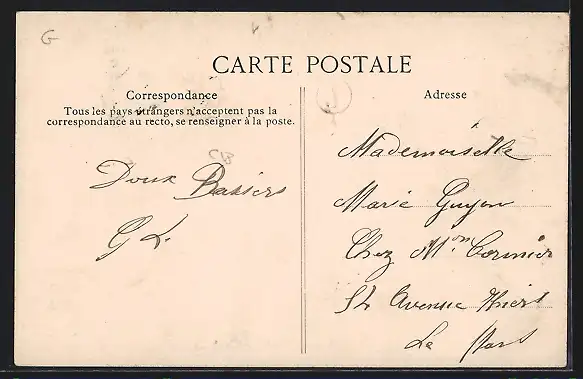 G
CARTE POSTALE
Correspondance
Tous les pays étrangers n'acceptent pas la
correspondance au recto, se renseigner à la poste.
Doux Baisers
G L.
Adresse
Mademoiselle
Marie Guyon
Chez Mon Cormier
Avenue Thiers
Le Mans